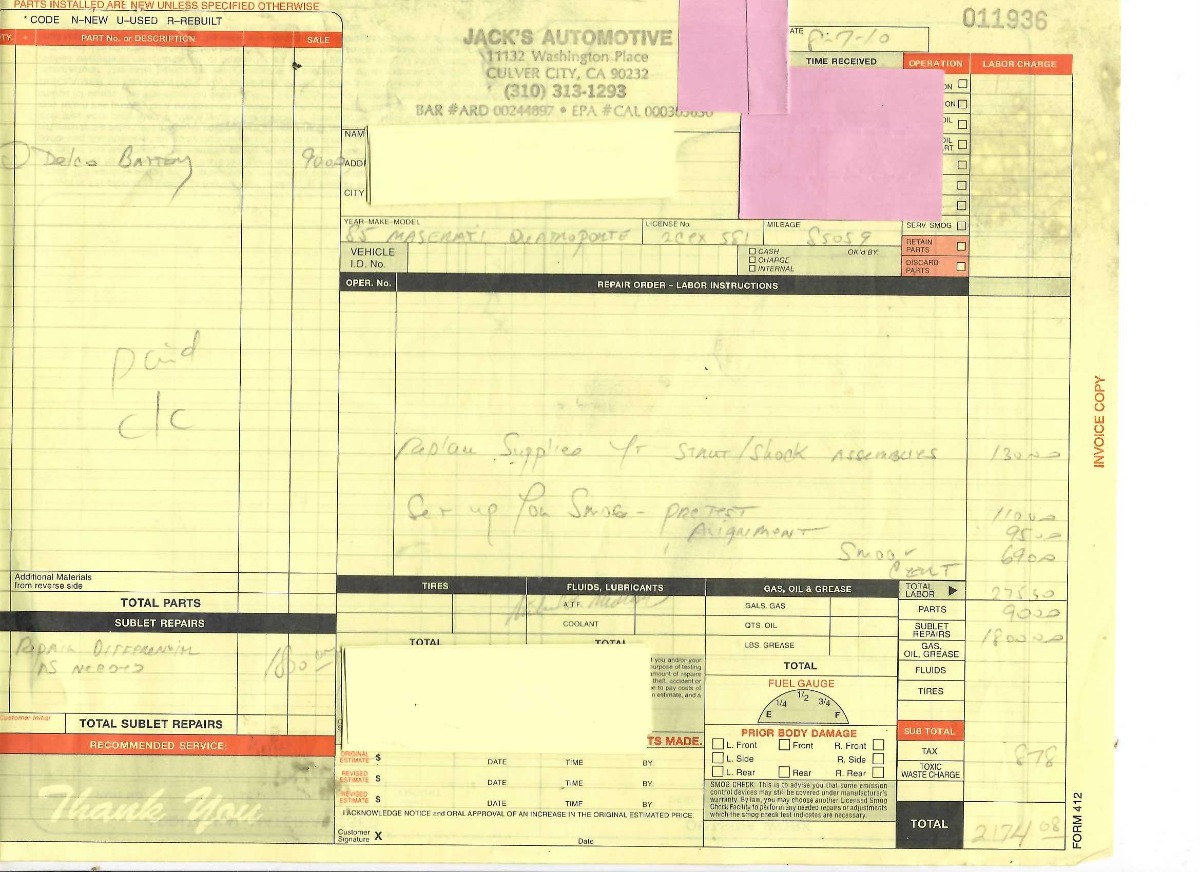 PARTS INSTALLED ARE NEW UNLESS SPECIFIED OTHERWISE
*CODE N-NEW U-USED R-REBUILT
PART No. or DESCRIPTION SALE
Delco Battery 90
paid
c/c
Additional Materials
from reverse side
TOTAL PARTS
SUBLET REPAIRS
REPAIR DIFFERENTIAL
AS NEEDED 1800
Customer Initial
TOTAL SUBLET REPAIRS
RECOMMENDED SERVICE:
Thank You
JACK'S AUTOMOTIVE
11132 Washington Place
CULVER CITY, CA 90232
(310) 313-1293
BAR #ARD 00244897 • EPA #CAL
011936
7-10
TIME RECEIVED
OPERATION LABOR CHARGE
NAM
ADD
CITY
YEAR-MAKE-MODEL LICENSE No. MILEAGE
85 MASERATI 85059
VEHICLE
I.D. No.
CASH OK'd BY:
CHARGE
INTERNAL
SERV. SMOG
RETAIN
PARTS
DISCARD
PARTS
OPER. No. REPAIR ORDER – LABOR INSTRUCTIONS
Supplied STRUT/Shock ASSEMBLYS 130
Set up for Smog - PRETEST 110
Alignment 95
Smog 69
CERT
TIRES FLUIDS, LUBRICANTS GAS, OIL & GREASE
A.T.F. GALS. GAS
COOLANT QTS. OIL
LBS. GREASE
TOTAL TOTAL TOTAL
TOTAL
LABOR
PARTS 90
SUBLET
REPAIRS 1800
GAS,
OIL, GREASE
FLUIDS
TIRES
SUB TOTAL
TAX 878
TOXIC
WASTE CHARGE
TOTAL 2174 08
FUEL GAUGE
E 1/4 1/2 3/4 F
PRIOR BODY DAMAGE
L. Front Front R. Front
L. Side R. Side
L. Rear Rear R. Rear
SMOG CHECK: This is to advise you that some emission
control devices may still be covered under manufacturer's
warranty. By law, you may choose another Licensed Smog
Check Facility to perform any needed repairs or adjustments
which the smog check test indicates are necessary.
TS MADE.
ORIGINAL
ESTIMATE $ DATE TIME BY:
REVISED
ESTIMATE $ DATE TIME BY:
REVISED
ESTIMATE $ DATE TIME BY:
I ACKNOWLEDGE NOTICE and ORAL APPROVAL OF AN INCREASE IN THE ORIGINAL ESTIMATED PRICE.
Customer
Signature X Date
INVOICE COPY
FORM 412